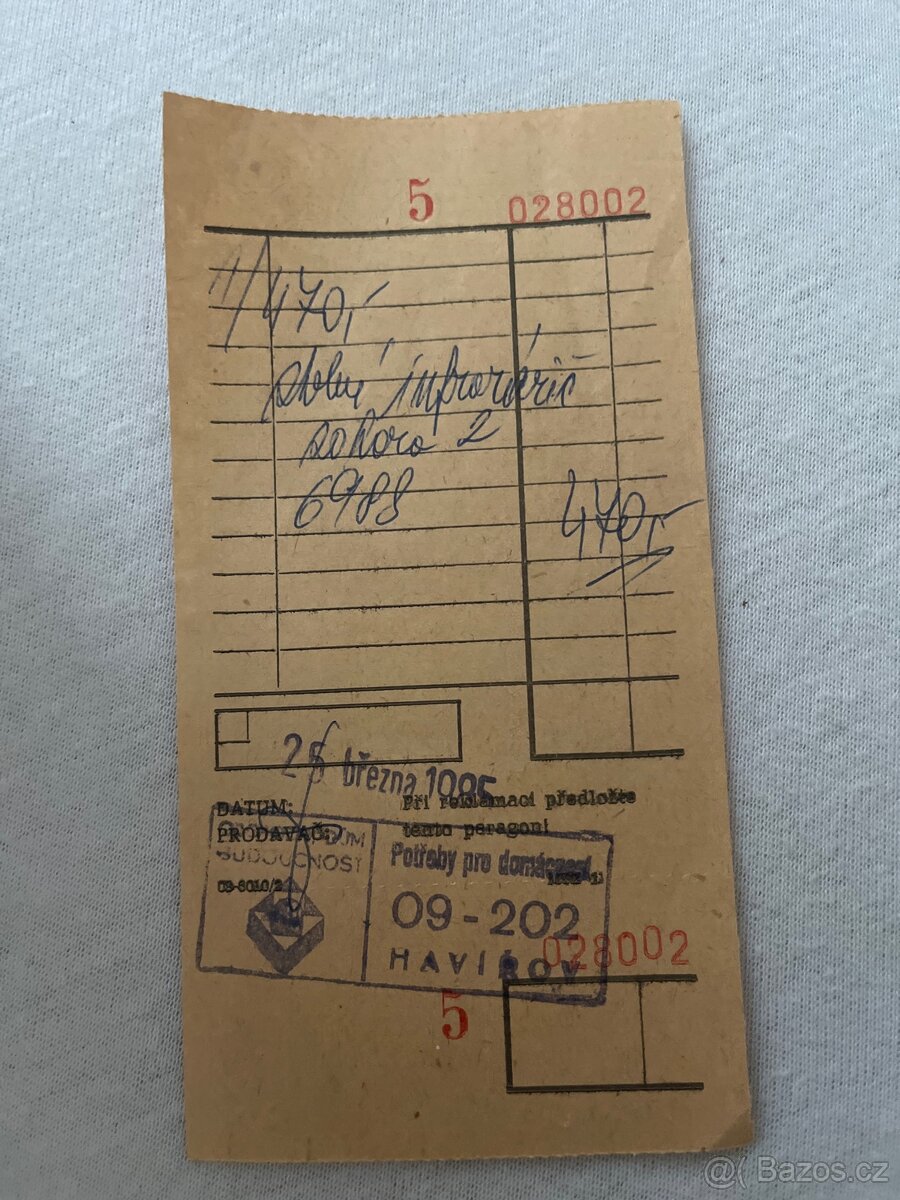 5 028002
1/ 470,-
stolní infrazářič
6988
470,-
března 1985
DATUM:
PRODAVAČ:
Při reklamaci předložte
tento paragon!
DUM
BUDOUCNOST
Potřeby pro domácnost
09-202
HAVÍŘOV
028002
5
@( Bazos.cz